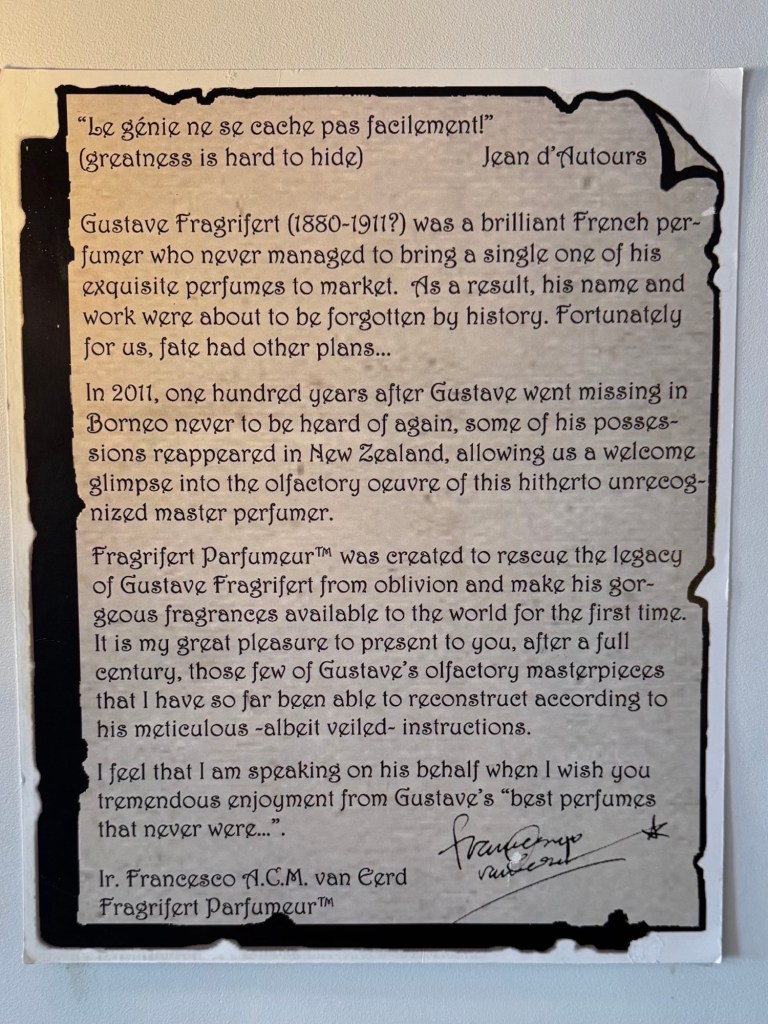 “Le génie ne se cache pas facilement!”
(greatness is hard to hide) Jean d’Autours
Gustave Fragrifert (1880-1911?) was a brilliant French per-
fumer who never managed to bring a single one of his
exquisite perfumes to market. As a result, his name and
work were about to be forgotten by history. Fortunately
for us, fate had other plans...
In 2011, one hundred years after Gustave went missing in
Borneo never to be heard of again, some of his posses-
sions reappeared in New Zealand, allowing us a welcome
glimpse into the olfactory oeuvre of this hitherto unrecog-
nized master perfumer.
Fragrifert Parfumeur™ was created to rescue the legacy
of Gustave Fragrifert from oblivion and make his gor-
geous fragrances available to the world for the first time.
It is my great pleasure to present to you, after a full
century, those few of Gustave’s olfactory masterpieces
that I have so far been able to reconstruct according to
his meticulous -albeit veiled- instructions.
I feel that I am speaking on his behalf when I wish you
tremendous enjoyment from Gustave’s “best perfumes
that never were...”.
Francesco
van Eerd
Ir. Francesco A.C.M. van Eerd
Fragrifert Parfumeur™